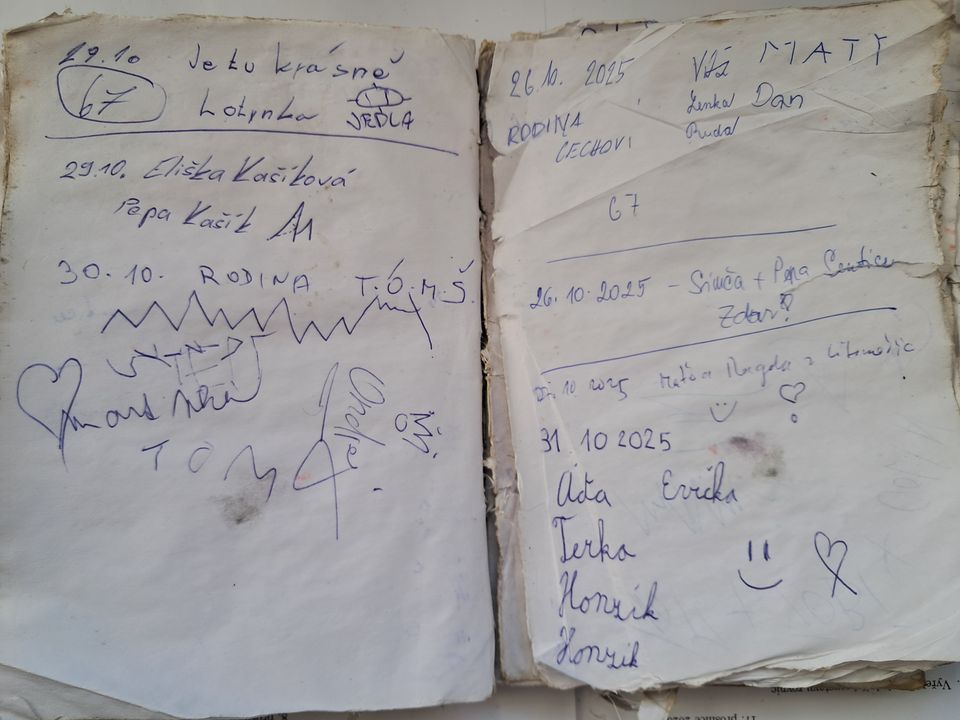 29.10 Je tu krásně
67 Lotynka JEDLA
29.10. Eliška Kašíková
Pepa Kašík
30. 10. RODINA T.Ó.M.Š.
TÓM
Ondře
26.10. 2025 Víťa MATY
Lenka Dan
RODINA Ruda
ČECHOVI
67
26.10.2025 - Simča + Pepa
Zdar
10 2025 Magda z
31 10 2025
Áďa Evička
Terka
Honzík
Honzík